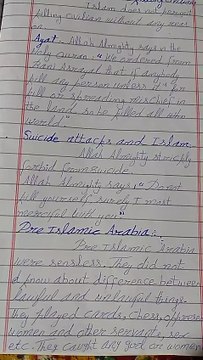 Islam does not
killing civilian without any rea
on.
Ayat:- Allah Almighty says in the
Holy Quran: "We ordered from
Bani Israyal that if anybody
kill any person unless if for
kill or spreading mischief in
the land so he killed all who
world"
Suicide attacks and Islam
Allah Almighty strictly
forbid
Allah Almighty says: "Do not
kill yourself surely I most
merciful
Pre Islamic Arabia:-
Pre Islamic Arabia
were sensless. They did not
know about difference between
lawful and unlawful things
They played cards, Chess, oppresse
women and other servants,
etc. They caught any god or women